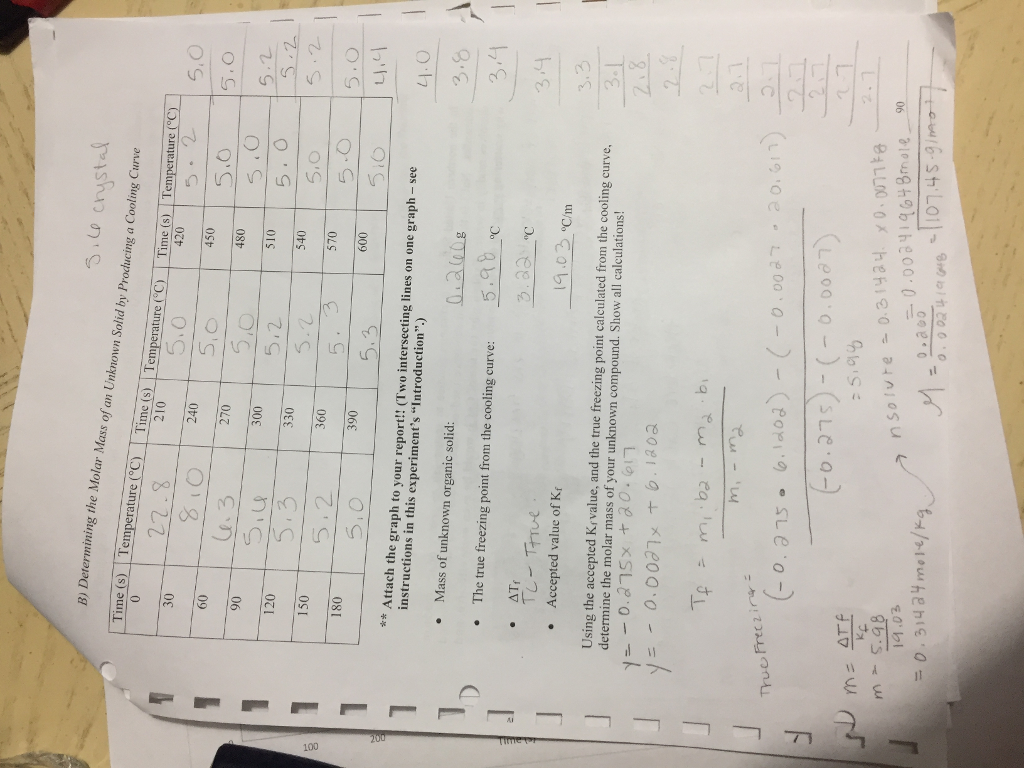 5.6 crystal
B) Determining the Molar Mass of an Unknown Solid by Producing a Cooling Curve
Time (s) Temperature (°C) Time (s) Temperature (°C) Time (s) Temperature (°C)
0 22.8 210 5.0 420 5.2 5.0
30 8.0 240 5.0 450 5.0 5.0
60 6.3 270 5.0 480 5.0 5.2
90 5.6 300 5.2 510 5.0 5.2
120 5.3 330 5.2 540 5.0 5.2
150 5.2 360 5.3 570 5.0 5.0
180 5.0 390 5.3 600 5.0 4.4
** Attach the graph to your report!! (Two intersecting lines on one graph – see
instructions in this experiment's "Introduction".)
4.0
• Mass of unknown organic solid: 0.260 g
3.8
• The true freezing point from the cooling curve: 5.98 °C
3.4
• ΔTf 3.22 °C
TC - Ttrue:
3.4
• Accepted value of Kf 19.03 °C/m
3.3
Using the accepted Kf value, and the true freezing point calculated from the cooling curve,
3.1
determine the molar mass of your unknown compound. Show all calculations!
2.8
y = -0.275x + 20.617
2.8
y = -0.0027x + 6.1202
2.7
Tf = m1·b2 - m2·b1
2.7
m1 - m2
2.7
True Freezing =
2.7
(-0.275 • 6.1202) - (-0.0027 • 20.617)
2.7
(-0.275) - (-0.0027)
2.7
= 5.98
2.7
m = ΔTf
Kf
m = 5.98
19.03
= 0.31424 mole/kg
nsolute = 0.31424 x 0.0077kg
= 0.0024196648 mole
M = 0.260
0.002419648 = 107.45 g/mol
90
100
200
Time (s)